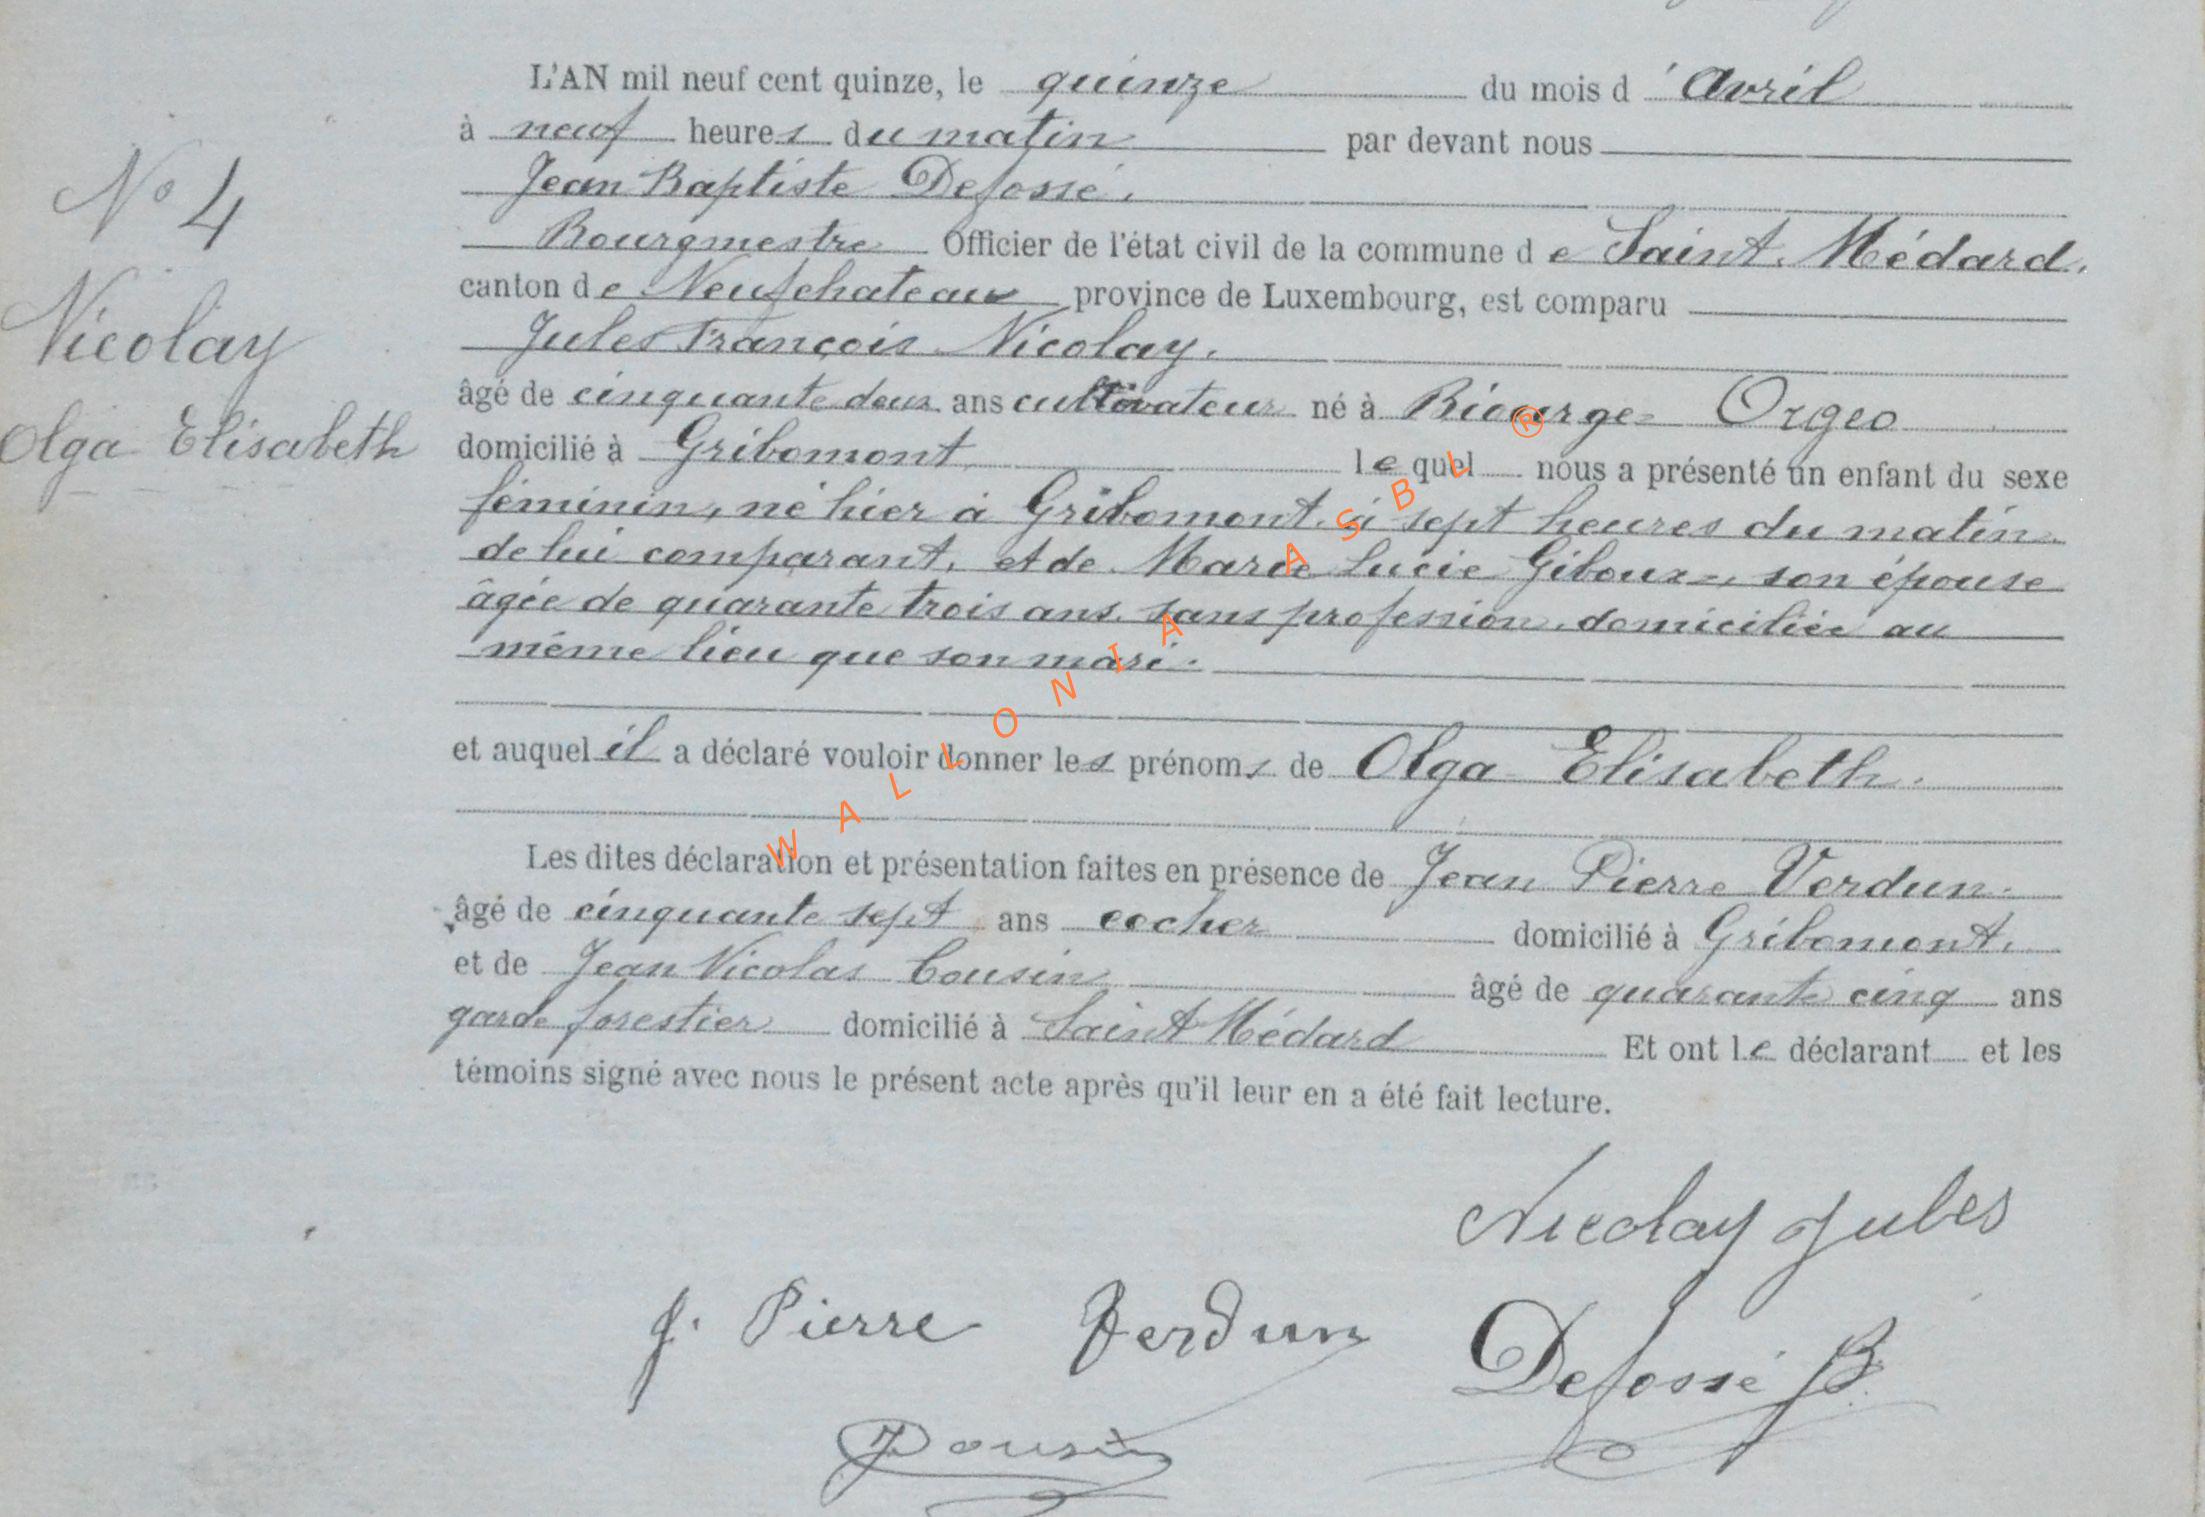 L'AN mil neuf cent quinze, le quinze du mois d'Avril
à neuf heures du matin par devant nous
Jean Baptiste Defossé.
Bourgmestre Officier de l'état civil de la commune de Saint. Médard.
canton de Neufchateau province de Luxembourg, est comparu
Jules François Nicolay.
âgé de cinquante deux ans cultivateur né à Biourge = Orgeo
domicilié à Gribomont le quel nous a présenté un enfant du sexe
féminin, né hier à Gribomont. à sept heures du matin.
de lui comparant, et de Marie Lucie Giboux =, son épouse
âgée de quarante trois ans. sans profession. domiciliée au
même lieu que son mari.
et auquel il a déclaré vouloir donner les prénoms de Olga Elisabeth.
Les dites déclaration et présentation faites en présence de Jean Pierre Verdun.
âgé de cinquante sept ans cocher domicilié à Gribomont.
et de Jean Nicolas Cousin âgé de quarante cinq ans
garde forestier domicilié à Saint Médard Et ont le déclarant et les
témoins signé avec nous le présent acte après qu'il leur en a été fait lecture.
No 4
Nicolay
Olga Elisabeth
Nicolay Jules
J. Pierre Verdun
Defossé JB.
Cousin
WALLONIA ASBL ®